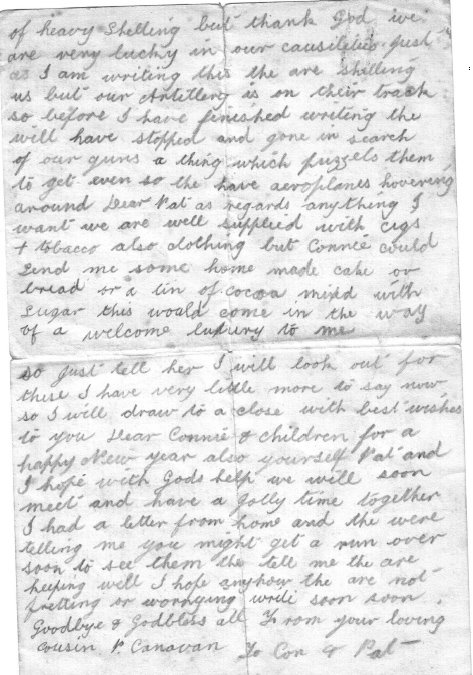 of heavy shelling but thank God we
are very lucky in our causilities Just
as I am writing this the are shilling
us but our Artitlery is on their track
so before I have finished writing the
will have stopped and gone in search
of our guns a thing which puzzels them
to get even so the have aeroplanes hovering
around Dear Pat as regards anything I
want we are well supplied with cigs
+ tobacco also clothing but Connie could
Send me some home made cake or
bread or a tin of cocoa mixed with
Sugar this would come in the way
of a welcome luxury to me
so Just tell her I will look out for
these I have very little more to say now
so I will draw to a close with best wishes
to you Dear Connie & children for a
happy New year also yourself Pat and
I hope with Gods help we will soon
meet and have a Jolly time together
I had a letter from home and the were
telling me you might get a run over
soon to see them the tell me the are
keeping well I hope anyhow the are not
fretting or worrying write soon soon.
Goodbye & Godbless all From your loving
cousin P. Canavan To Con & Pat